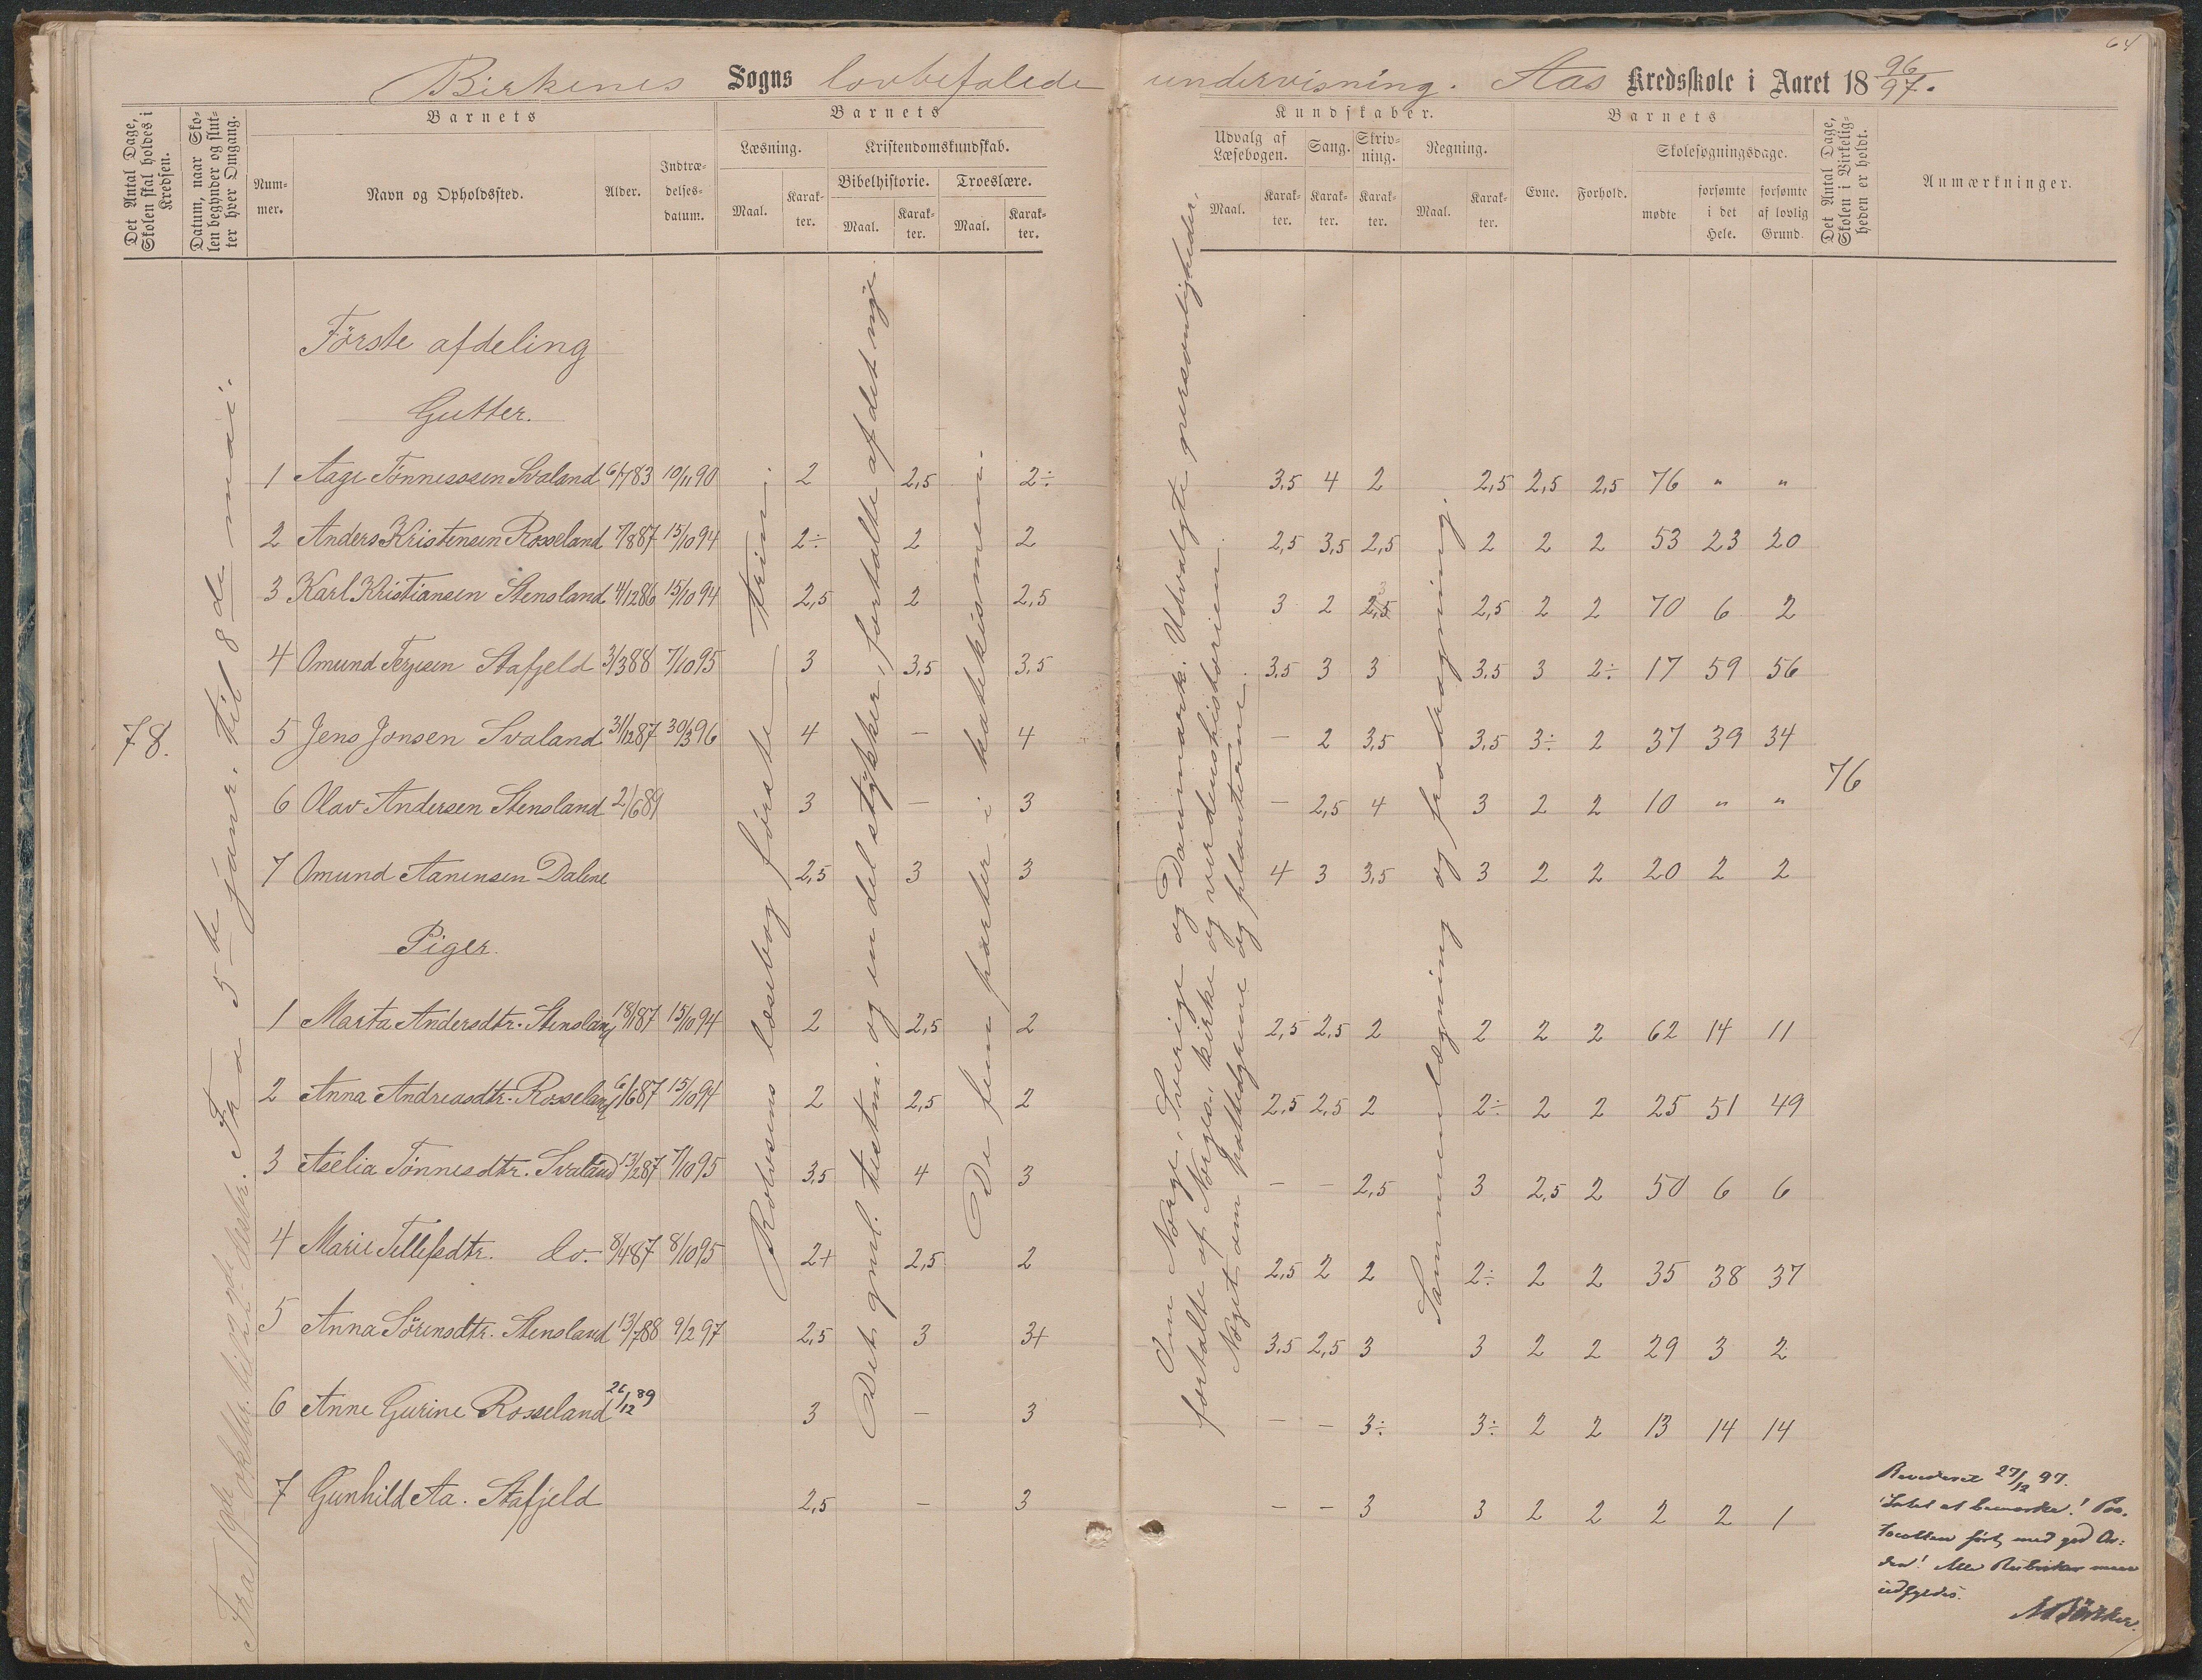 64
Birkenes Sogns lovbefalede undervisning. Aas Kredsskole i Aaret 18 96/97.
Det Antal Dage, Skolen skal holdes i Kredsen.
Datum, naar Skolen begynder og slutter hver Omgang.
Barnets
Nummer.
Navn og Opholdssted.
Alder.
Indtrædelsesdatum.
Barnets
Læsning.
Maal.
Karakter.
Kristendomskundskab.
Bibelhistorie.
Maal.
Karakter.
Troeslære.
Maal.
Karakter.
Kundskaber.
Udvalg af Læsebogen.
Maal.
Karakter.
Sang.
Karakter.
Skrivning.
Karakter.
Regning.
Maal.
Karakter.
Barnets
Evne.
Forhold.
Skolesøgningsdage.
mødte
forsømte i det Hele.
forsømte af lovlig Grund.
Det Antal Dage, Skolen i Virkeligheden er holdt.
Anmærkninger.
78.
Fra 5te januar til 8de mai.
Rolvsens læsebog første trin.
Det gml. testm. og en del stykker, fortalte af det nye.
De fem parter i katekismen.
Om Norge, Sverige og Danmark. Udvalgte personligheder,
fortalte af Norges, kirke og verdenshistorien.
Noget om pattedyrene og planterne.
Sammenlægning og fradragning.
76
Første afdeling
Gutter.
1 Aage Tønnessen Svaland 6/7 83 10/11 90 2 2,5 2÷ 3,5 4 2 2,5 2,5 2,5 76 " "
2 Anders Kristensen Rosseland 7/8 87 15/10 94 2÷ 2 2 2,5 3,5 2,5 2 2 2 53 23 20
3 Karl Kristiansen Stensland 4/12 86 15/10 94 2,5 2 2,5 3 2 2,5 3 2,5 2 2 70 6 2
4 Omund Terjesen Stafjeld 3/3 88 7/10 95 3 3,5 3,5 3,5 3 3 3,5 3 2÷ 17 59 56
5 Jens Jonsen Svaland 31/12 87 30/3 96 4 — 4 — 2 3,5 3,5 3÷ 2 37 39 34
6 Olav Andersen Stensland 2/6 89 3 — 3 — 2,5 4 3 2 2 10 " "
7 Omund Aanensen Dalene 2,5 3 3 4 3 3,5 3 2 2 20 2 2
Piger.
1 Marta Andersdtr. Stensland 18/1 87 15/10 94 2 2,5 2 2,5 2,5 2 2 2 2 62 14 11
2 Anna Andreasdtr. Rosseland 6/6 87 15/10 94 2 2,5 2 2,5 2,5 2 2÷ 2 2 25 51 49
3 Aselia Tønnesdtr. Svaland 13/2 87 7/10 95 3,5 4 3 — — 2,5 3 2,5 2 50 6 6
4 Marie Tellefsdtr. do. 8/4 87 8/10 95 2+ 2,5 2 2,5 2 2 2÷ 2 2 35 38 37
5 Anna Sörensdtr. Stensland 13/7 88 9/2 97 2,5 3 3+ 3,5 2,5 3 3 2 2 29 3 2
6 Anne Gurine Rosseland 26/12 89 3 — 3 — — 3÷ 3÷ 2 2 13 14 14
7 Gunhild Aa. Stafjeld 2,5 — 3 — — 3 3 2 2 2 2 1
Revideret 27/12 97.
Intet at bemærke! Pro-
tocollen ført med god Or-
den! Alle Rubriker maa
udfyldes.